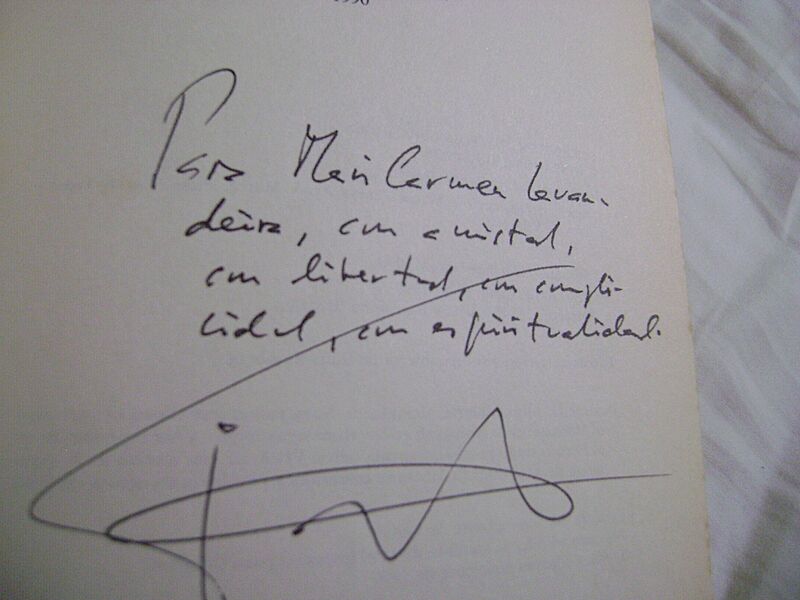 1990
Para Mari Carmen Lavan-
deira, con amistad,
con libertad, con compli-
cidad, con espiritualidad.